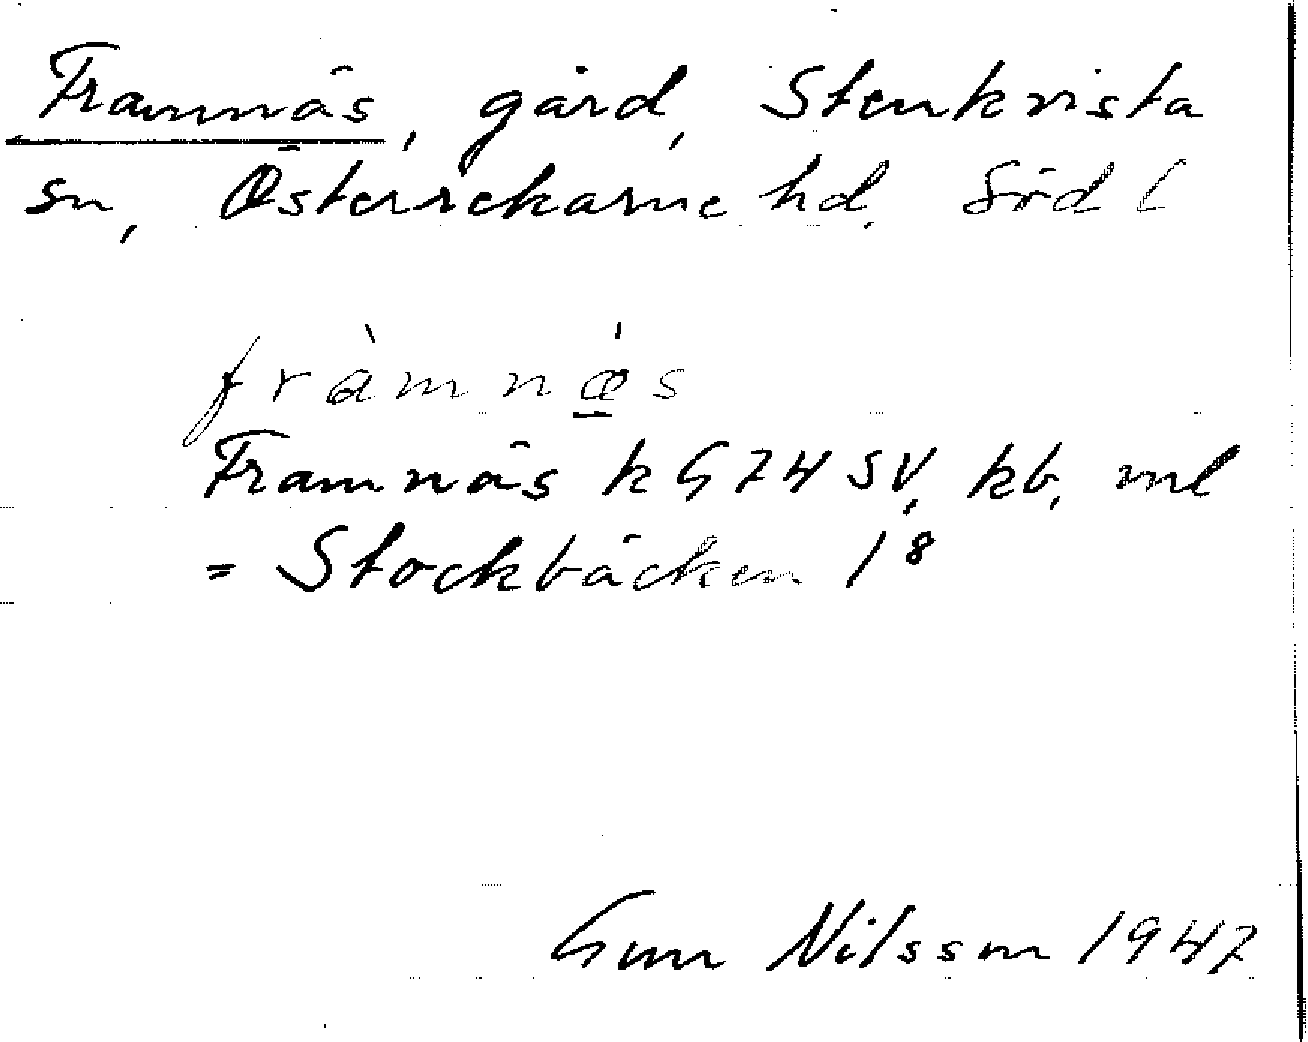 Framnäs, gård, Stenkvista
sn, Österrekarne hd. Söd l
fràmnǽs
Framnäs k G 74 SV, kb, ml
= Stockbäcken 1⁸
Gun Nilsson 1947